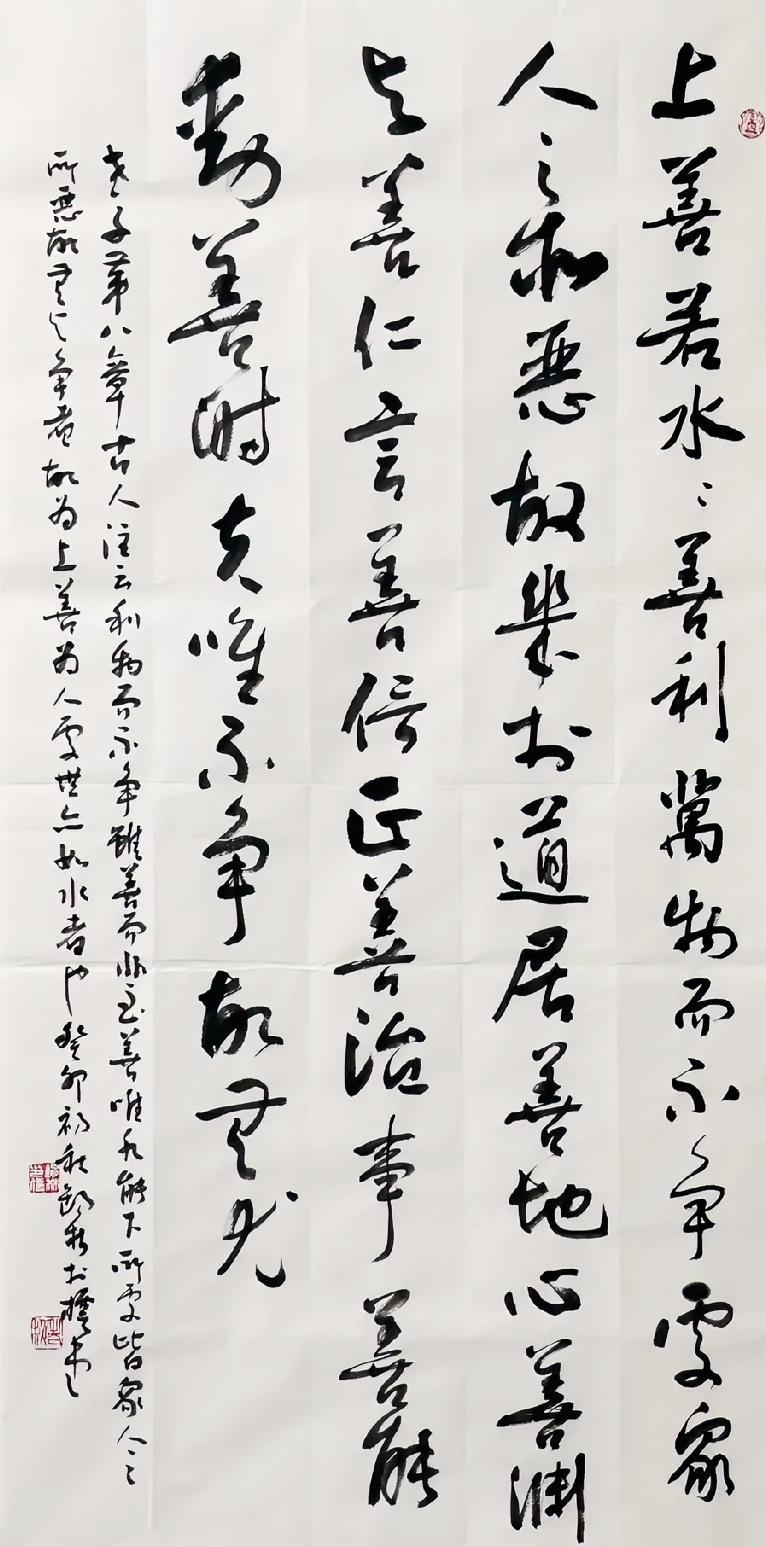 上善若水〻善利萬物而不争處眾
人之所惡故幾於道居善地心善淵
与善仁言善信正善治事善能
動善時夫唯不争故無尤
老子第八章古人注云利物而不争雖善而非至善唯水能下所處皆眾人之
所惡故無与争者故為上善為人處世亦如水者也癸卯初秋